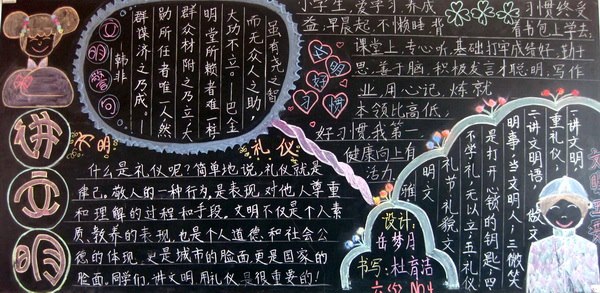 小学生,爱学习,养成
习惯终受
益,早晨起,不懒睡,背着书包上学去,
课堂上,专心听,基础打牢成绩好,勤
思,善于脑,积极发言才聪明,写作
业,用心记,炼就
本领比高低,
好习惯我第一
健康向上有
活力
文明
好
习惯
虽有尧之智
而无众人之助
大功不立。——巴金
明堂所赖者唯一样
群众材附之乃立大
勋所任者唯一人然
群谋济之乃成。——
韩非
文明警句
讲文明
文明
礼仪
什么是礼仪呢?简单地说,礼仪就是
律己。敬人的一种行为,是表现,对他人尊重
和理解的过程和手段。文明不仅是个人素
质、教养的表现,也是个人道德和社会公
德的体现,更是城市的脸面,更是国家的
脸面。同学们,讲文明,用礼仪是很重要的!
一讲文明,
重礼仪,
二讲文明语,做文
明事,当文明人,三微笑
是打开心锁的钥匙,四
不学礼,无以立,五礼仪
礼节礼貌文
明文雅
设计:
岳梦月
书写:杜育洁
六(5) No.4